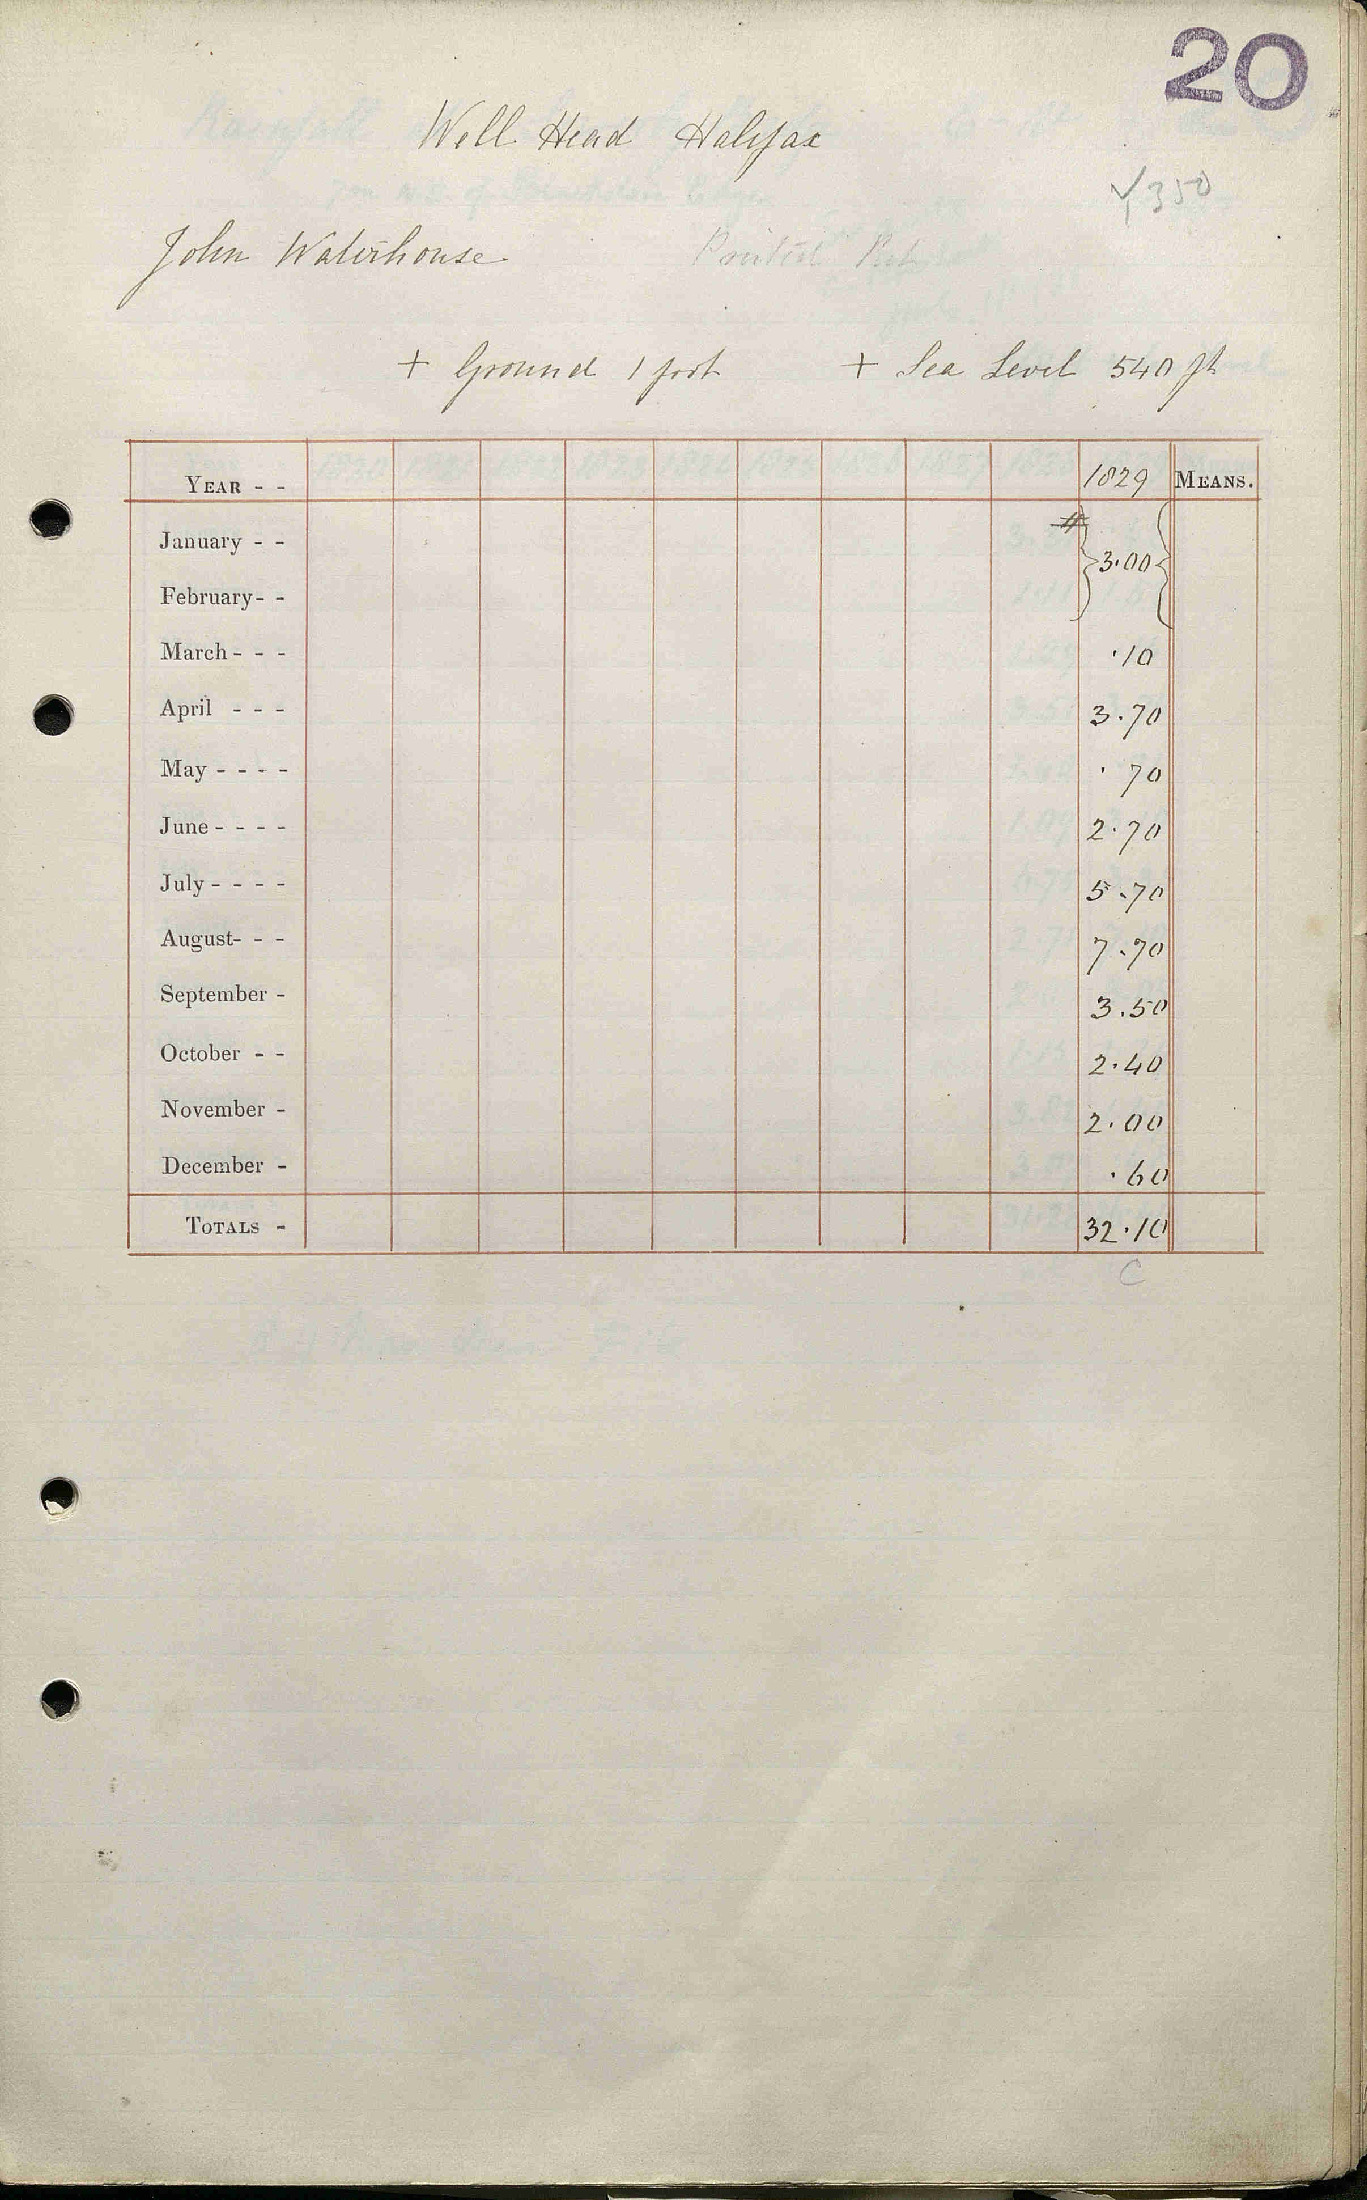 20
Well Head Halifax
Y350
John Waterhouse Printed Ret
+ Ground 1 foot + Sea Level 540 ft
YEAR - - 1829 MEANS.
#
January - -
3.00
February - -
March - - - .10
April - - - 3.70
May - - - - .70
June - - - - 2.70
July - - - - 5.70
August - - - 7.70
September - 3.50
October - - 2.40
November - 2.00
December - .60
TOTALS - 32.10
C